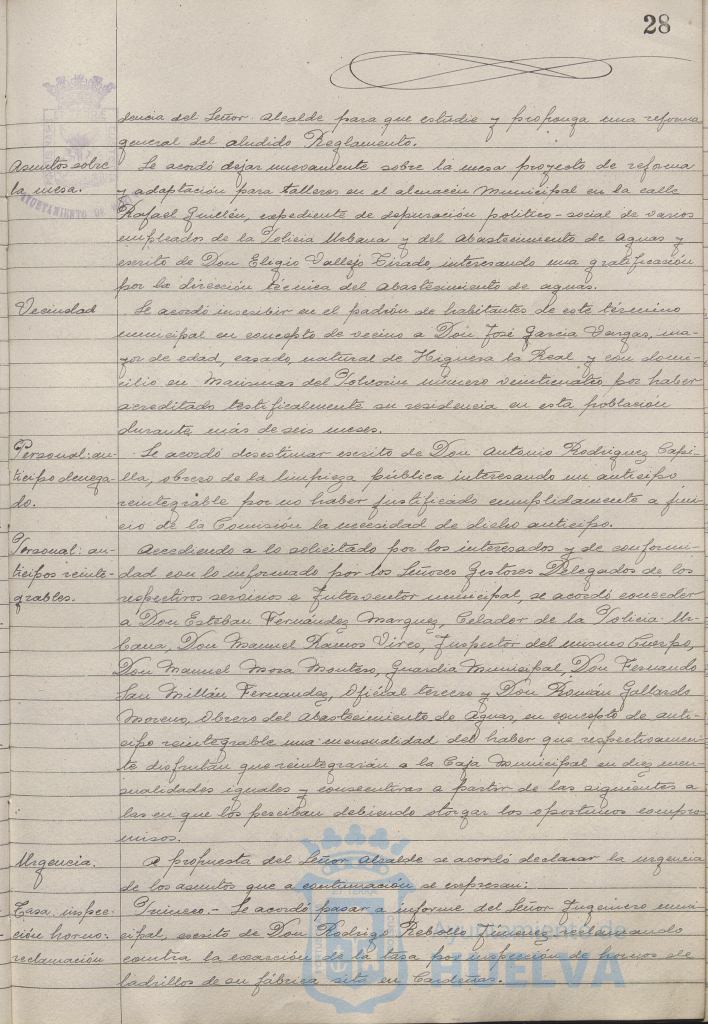 28
dencia del Señor Alcalde para que estudie y proponga una reforma
general del aludido Reglamento.
Asuntos sobre
la mesa.
Se acordó dejar nuevamente sobre la mesa proyecto de reforma
y adaptación para talleres en el almacén Municipal en la calle
Rafael Guillén, expediente de depuración político-social de varios
empleados de la Policía Urbana y del Abastecimiento de Aguas y
escrito de Don Eligio Vallejo Tirado, interesando una gratificación
por la dirección técnica del Abastecimiento de aguas.
Vecindad
Se acordó inscribir en el padrón de habitantes de este término
municipal en concepto de vecino a Don José García Vargas, ma-
yor de edad, casado, natural de Higuera la Real y con domi-
cilio en Marismas del Polvorín número veinticuatro, por haber
acreditado testificalmente su residencia en esta población
durante más de seis meses.
Personal: an-
ticipo denega-
do.
Se acordó desestimar escrito de Don Antonio Rodríguez Capi-
lla, obrero de la limpieza pública interesando un anticipo
reintegrable por no haber justificado cumplidamente a jui-
cio de la Comisión la necesidad de dicho anticipo.
Personal: an-
ticipos reinte-
grables.
Accediendo a lo solicitado por los interesados y de conformi-
dad con lo informado por los Señores Gestores Delegados de los
respectivos servicios e Interventor municipal, se acordó conceder
a Don Esteban Fernández Márquez, Celador de la Policía Ur-
bana, Don Manuel Ramos Vires, Inspector del mismo Cuerpo,
Don Manuel Mora Montero, Guardia Municipal, Don Fernando
San Millán Fernández, Oficial tercero y Don Román Gallardo
Moreno, Obrero del Abastecimiento de Aguas, en concepto de anti-
cipo reintegrable una mensualidad del haber que respectivamen-
te disfrutan que reintegrarán a la Caja Municipal en diez men-
sualidades iguales y consecutivas a partir de las siguientes a
las en que los perciban debiendo otorgar los oportunos compro-
misos.
Urgencia.
A propuesta del Señor Alcalde se acordó declarar la urgencia
de los asuntos que a continuación se expresan:
Tasa inspec-
ción hornos:
reclamación
Primero.- Se acordó pasar a informe del Señor Ingeniero muni-
cipal, escrito de Don Rodrigo Rebollo Jiménez reclamando
contra la exacción de la tasa por inspección de hornos de
ladrillos de su fábrica sita en Cardeñas.
Ayuntamiento de
HUELVA